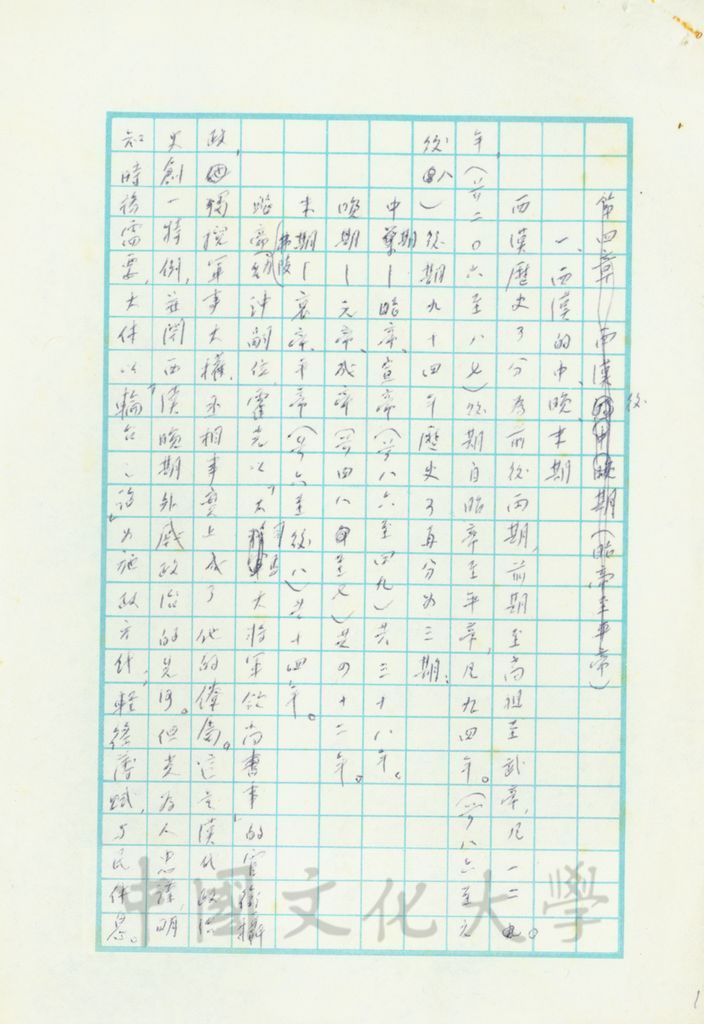 第四章 西漢後期(昭帝至平帝)
一、西漢的中、晚、末期
西漢歷史可分為前後兩期,前期至高祖至武帝,凡一二
年,(前二〇六至八七)後期自昭帝至平帝,凡九四年。(前八六至元
後八)後期九十四年歷史可再分為三期:
中期—昭帝、宣帝(前八六至四九)共三十八年。
晚期—元帝、成帝(前四八至七)共四十二年。
末期—哀帝、平帝(前六至後八)共十四年。
昭帝(弗陵)以沖嗣位,霍光以「大司馬大將軍領尚書事」的官銜攝
政,獨攬軍事大權,丞相事實上成了他的僚屬。這是漢代政治
史創一特例,並開西漢晚期外戚政治的先河。但光為人忠謹,明
知時務需要,大体以「輪台之詔」為施政方針,輕徭薄賦,与民休息。
中國文化大學
1